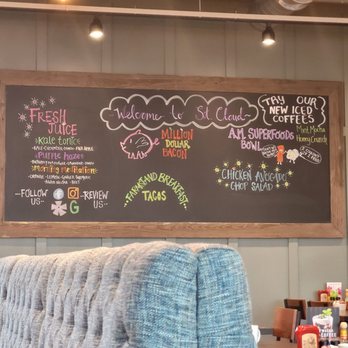 Welcome to St. Cloud
FRESH
JUICE
Kale tonic
Purple haze
Morning meditation
-FOLLOW
US-
-REVIEW
US-
G
MILLION
DOLLAR
BACON
FARMSTAND BREAKFAST
TACOS
A.M. SUPERFOODS
BOWL
CHICKEN AVOCADO
CHOP SALAD
TRY OUR
NEW ICED
COFFEES
Mint Mocha
Honey Crunch